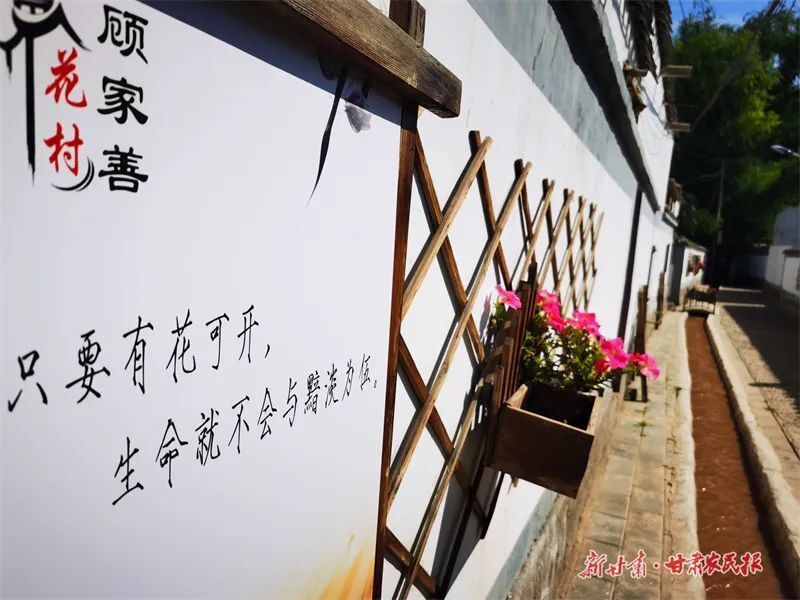 顾家善
花村
只要有花可开,
生命就不会与黯淡为伍。
新甘肃·甘肃农民报